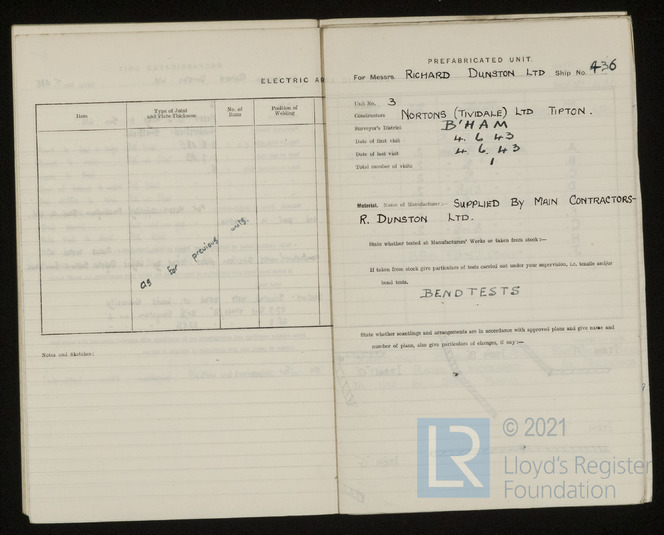 ELECTRIC A
Item
Type of Joint and Plate Thickness
No. of Runs
Position of Welding
as for previous units.
Notes and Sketches:
PREFABRICATED UNIT.
For Messrs. RICHARD DUNSTON LTD Ship No. 436
Unit No. 3
Constructors NORTONS (TIVIDALE) LTD TIPTON.
Surveyor's District B'HAM
Date of first visit 4. 6. 43
Date of last visit 4. 6. 43
Total number of visits 1
Material. Name of Manufacturer:- SUPPLIED BY MAIN CONTRACTORS-
R. DUNSTON LTD.
State whether tested at Manufacturers' Works or taken from stock:—
If taken from stock give particulars of tests carried out under your supervision, i.e. tensile and/or
bend tests.
BEND TESTS
State whether scantlings and arrangements are in accordance with approved plans and give name and
number of plans, also give particulars of changes, if any:—
LR
© 2021
Lloyd's Register
Foundation